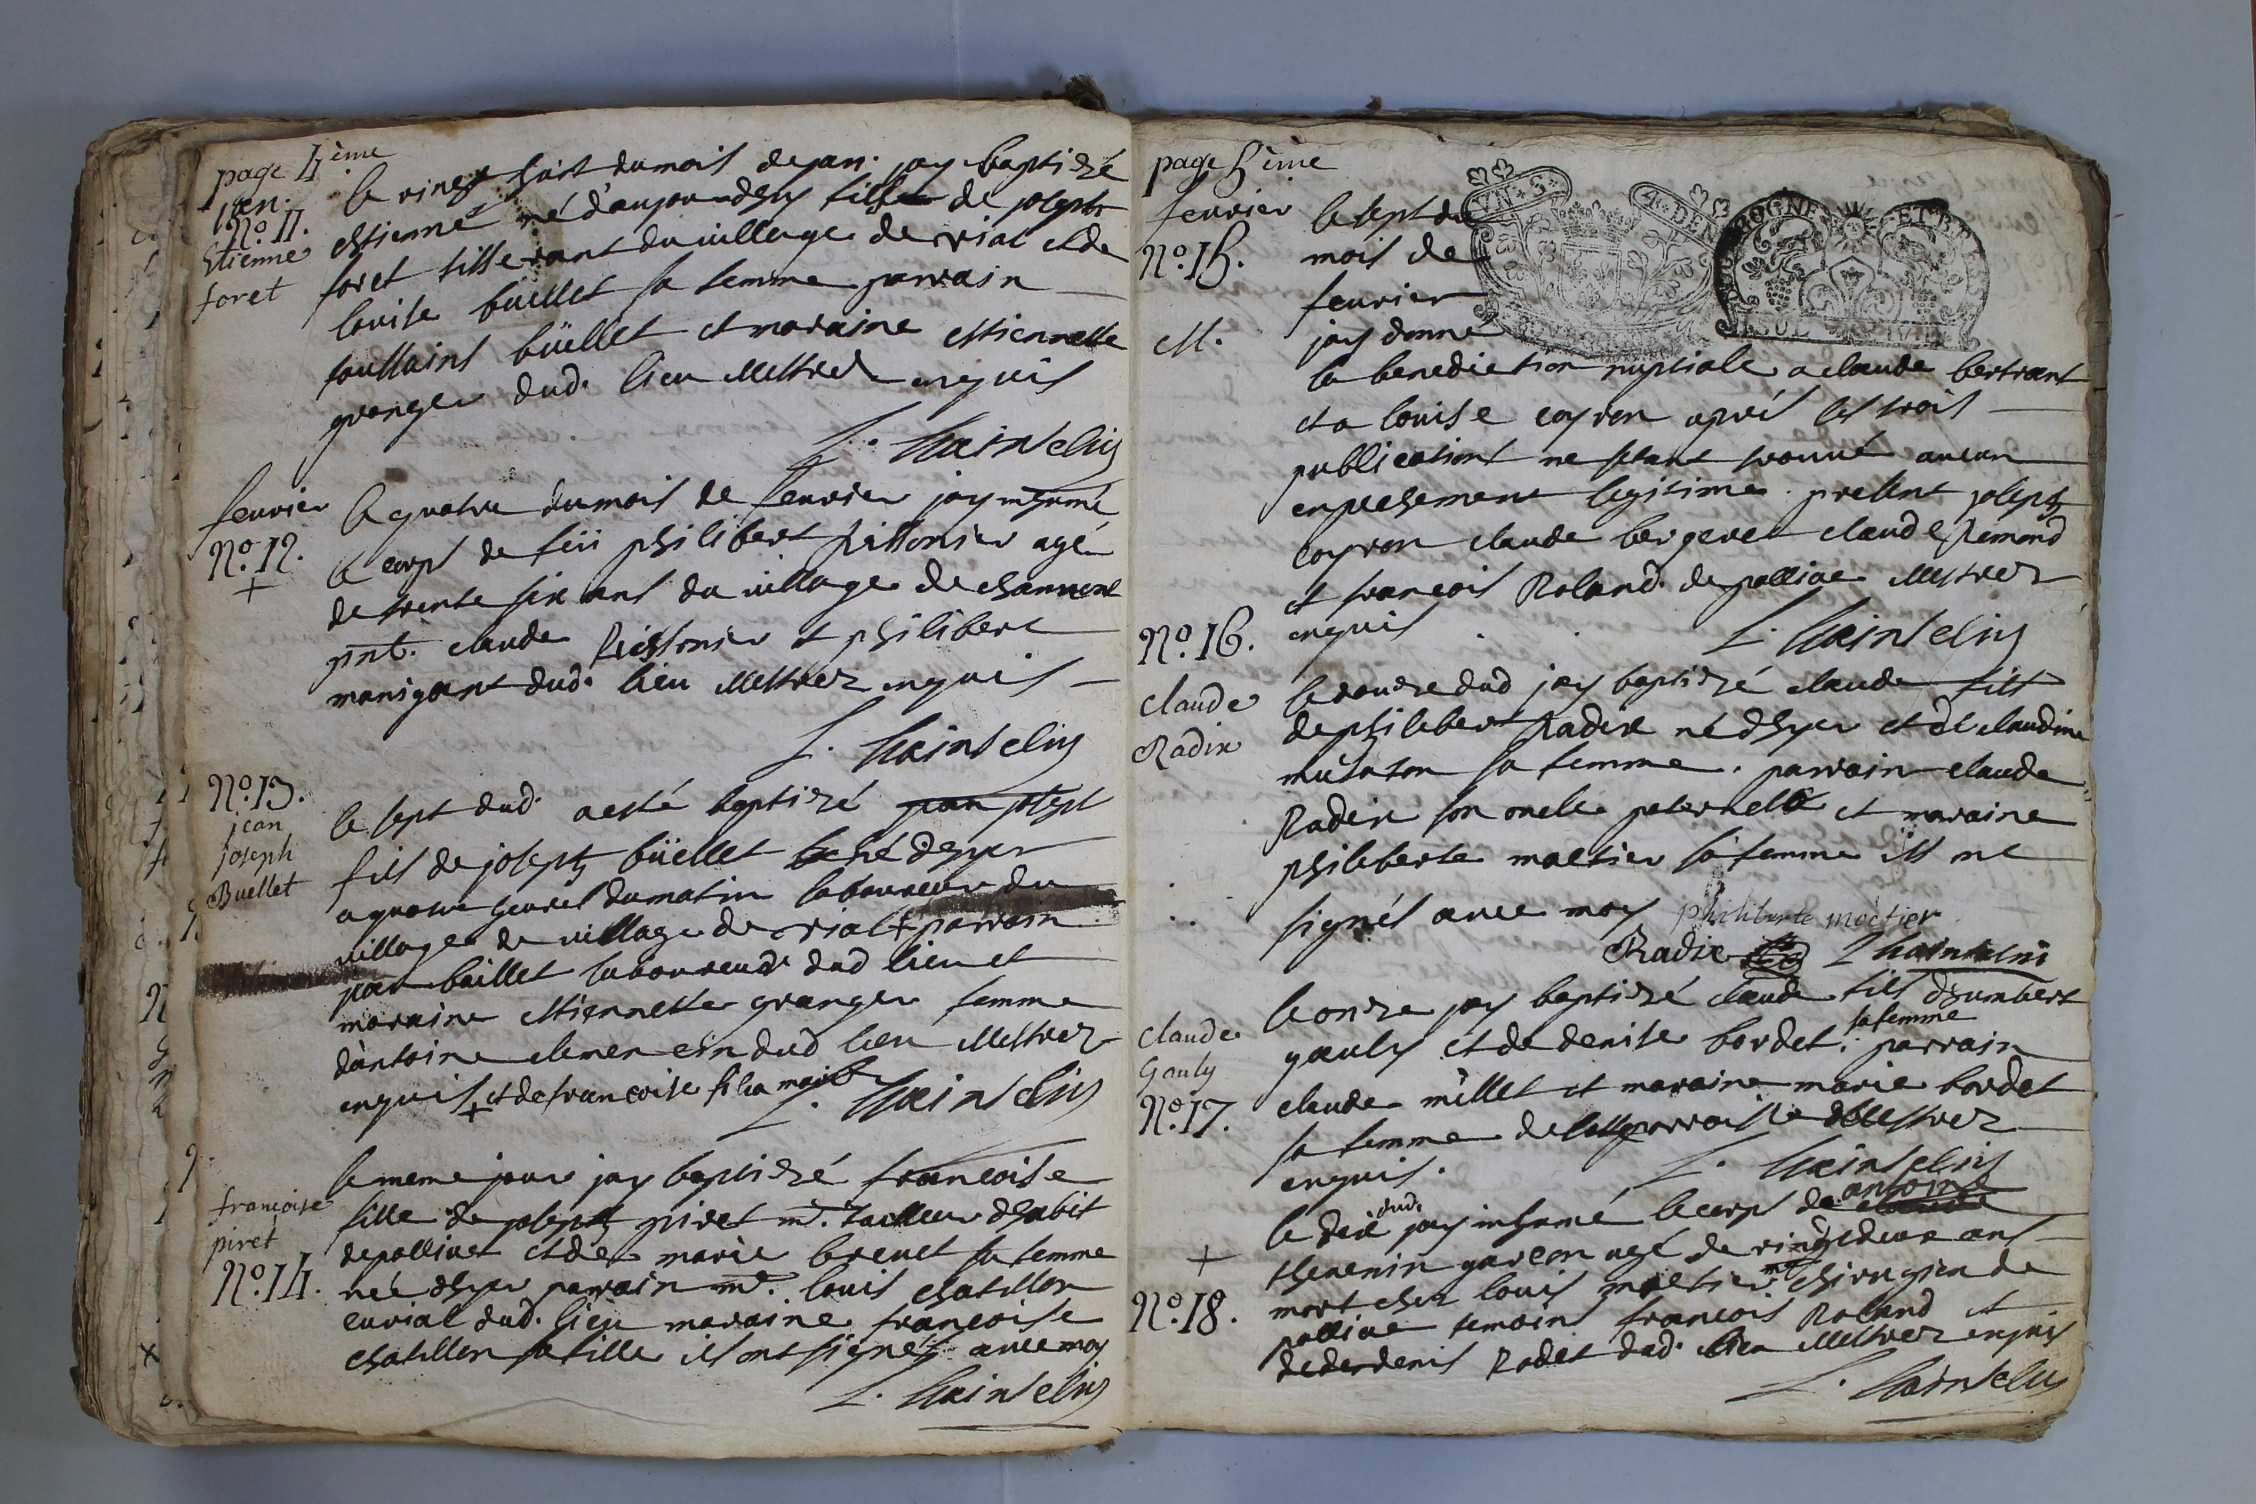 page 4ème
Jan.
No. 11.
Etienne
foret
le vingt huit du mois de jan. jay baptizé
estienne né d'aujourdhuy fils de joseph
foret tisserant du village de vial et de
louise büellet sa femme parrain
toussains büellet et maraine estiennette
granger dud. lieu illettrez enquis
L. hainselin
feurier
No. 12.
+
le quatre du mois de feurier jay inhumé
le corps de feü philibert pissonier agé
de trente six ans du village de
pnt. claude pissonier et philibert
manigant dud. lieu illettrez enquis
L. hainselin
No. 13.
jean
joseph
Buellet
le sept dud. a esté baptizé jean joseph
fils de joseph büellet né dhyer
a quatre heures du matin laboureur du
village de village de vial + parrain
jean büillet laboureur dud lieu et
maraine estiennette granger femme
d'antoine clemencin dud lieu illettrez
enquis + et de francoise
L. hainselin
francoise
piret
No. 14.
le meme jour jay baptizé francoise
fille de joseph piret md. tailleur dhabit
de pollieu et de marie brevet sa femme
née dhyer parrain mr. louis chatillon
curial dud. lieu maraine francoise
chatillon sa fille ils ont signés avec moy
L. hainselin
page 5ème
feurier
No. 15.
M.
UN S. 4. DEN
BOURGOGNE ET BRESSE
le sept du
mois de
feurier
jay donné
la benediction nuptiale a claude bertrant
et a louise coyron aprés les trois
publications ne setant trouvé aucun
enpechement legitime. present joseph
coyron claude bergeret claude Remond
et francois Roland. de polliae illettrez
enquis
L. hainselin
No. 16.
claude
Radix
le douze dud jay baptizé claude fils
de philebert Radix né dhyer et de claudine
mutaton sa femme. parrain claude
Radix son oncle peternelle et maraine
philiberte moetier sa femme ils ont
signés avec moy philiberte moetier
Radix L hainselin
claude
Gauly
No. 17.
le onze jay baptizé claude fils dhumbert
gauly et de denise bordet. sa femme parrain
claude millet et maraine marie bordet
sa femme de cette parroisse illettrez
enquis.
L. hainselin
+
No. 18.
le dix dud. jay inhumé le corp de antoine
thevenin garcon agé de vingt deux ans
mort chez louis moetier mtre chirugien de
polliae temoins francois Roland et
denis Rodet dud. lieu illettrez enquis
L. hainselin